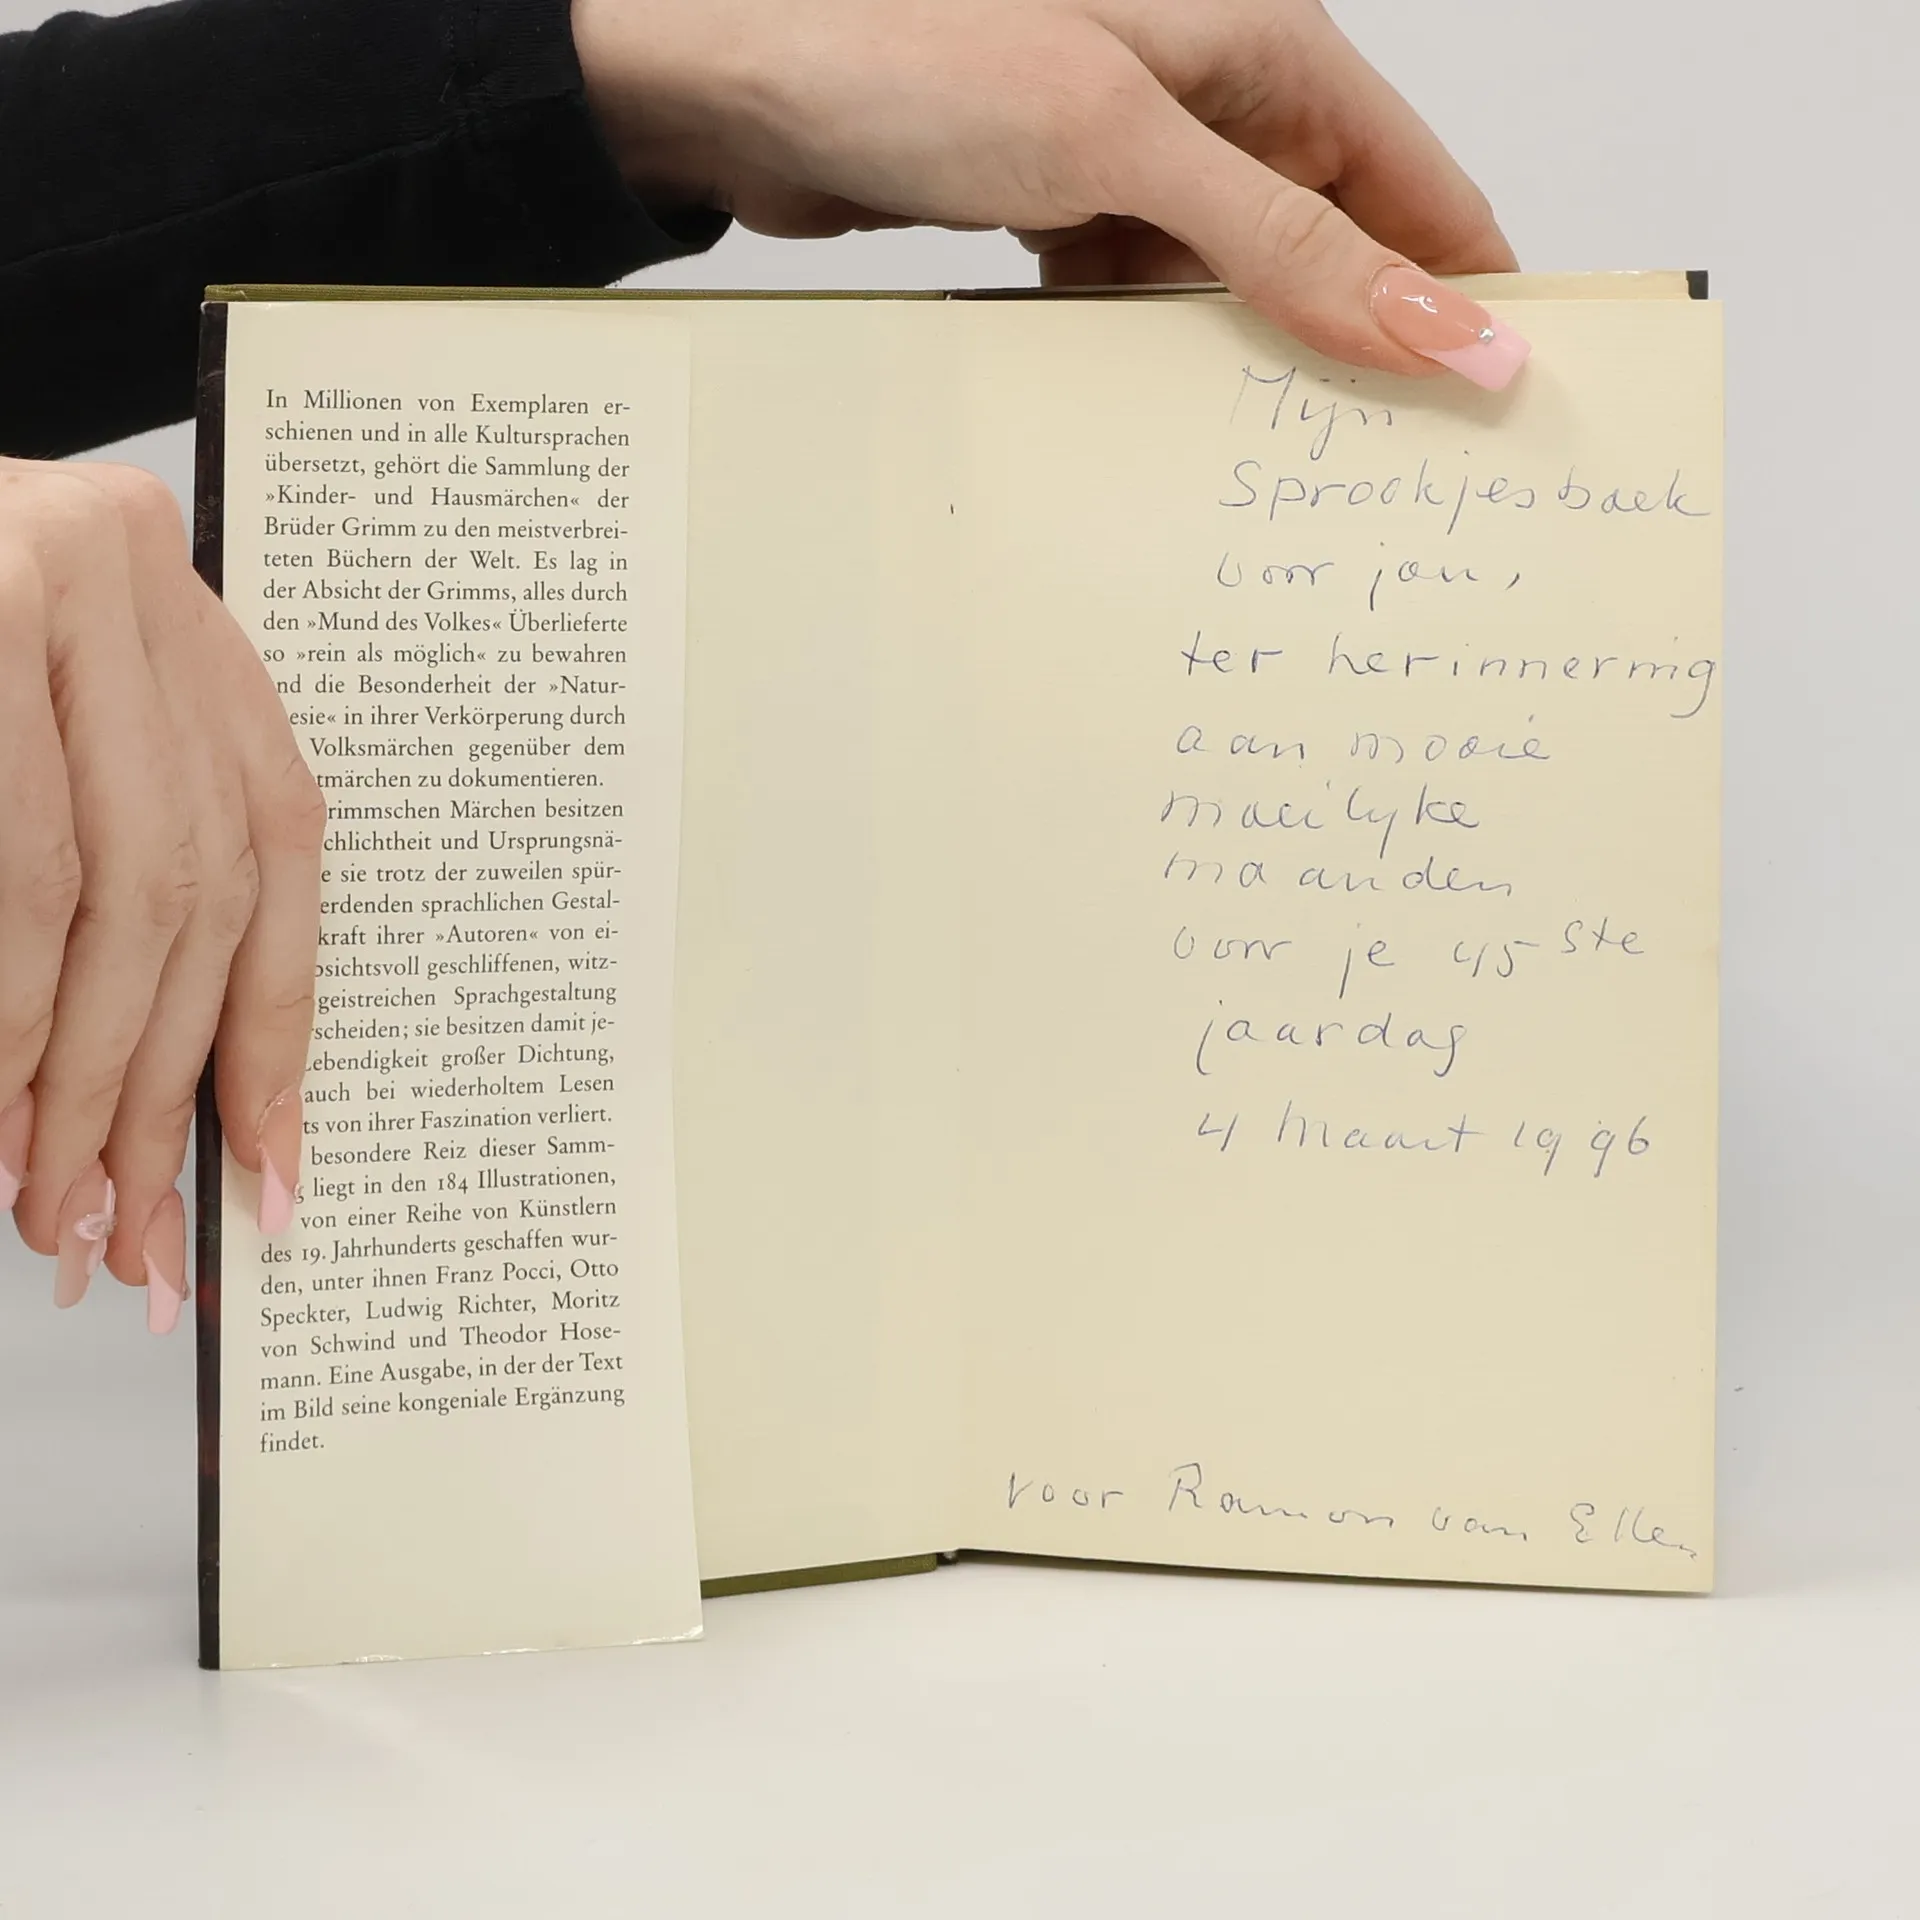 In Millionen von Exemplaren er-
schienen und in alle Kultursprachen
übersetzt, gehört die Sammlung der
»Kinder- und Hausmärchen« der
Brüder Grimm zu den meistverbrei-
teten Büchern der Welt. Es lag in
der Absicht der Grimms, alles durch
den »Mund des Volkes« Überlieferte
so »rein als möglich« zu bewahren
nd die Besonderheit der »Natur-
esie« in ihrer Verkörperung durch
Volksmärchen gegenüber dem
tmärchen zu dokumentieren.
rimmschen Märchen besitzen
chlichtheit und Ursprungsnä-
e sie trotz der zuweilen spür-
erdenden sprachlichen Gestal-
kraft ihrer »Autoren« von ei-
bsichtsvoll geschliffenen, witz-
geistreichen Sprachgestaltung
scheiden; sie besitzen damit je-
Lebendigkeit großer Dichtung,
auch bei wiederholtem Lesen
ts von ihrer Faszination verliert.
besondere Reiz dieser Samm-
g liegt in den 184 Illustrationen,
von einer Reihe von Künstlern
des 19. Jahrhunderts geschaffen wur-
den, unter ihnen Franz Pocci, Otto
Speckter, Ludwig Richter, Moritz
von Schwind und Theodor Hose-
mann. Eine Ausgabe, in der der Text
im Bild seine kongeniale Ergänzung
findet.
Mijn
Sprookjesboek
voor jou,
ter herinnering
aan mooie
moeilyke
maanden
voor je 45ste
jaardag
4 maart 1996
voor Ramon van Ellen